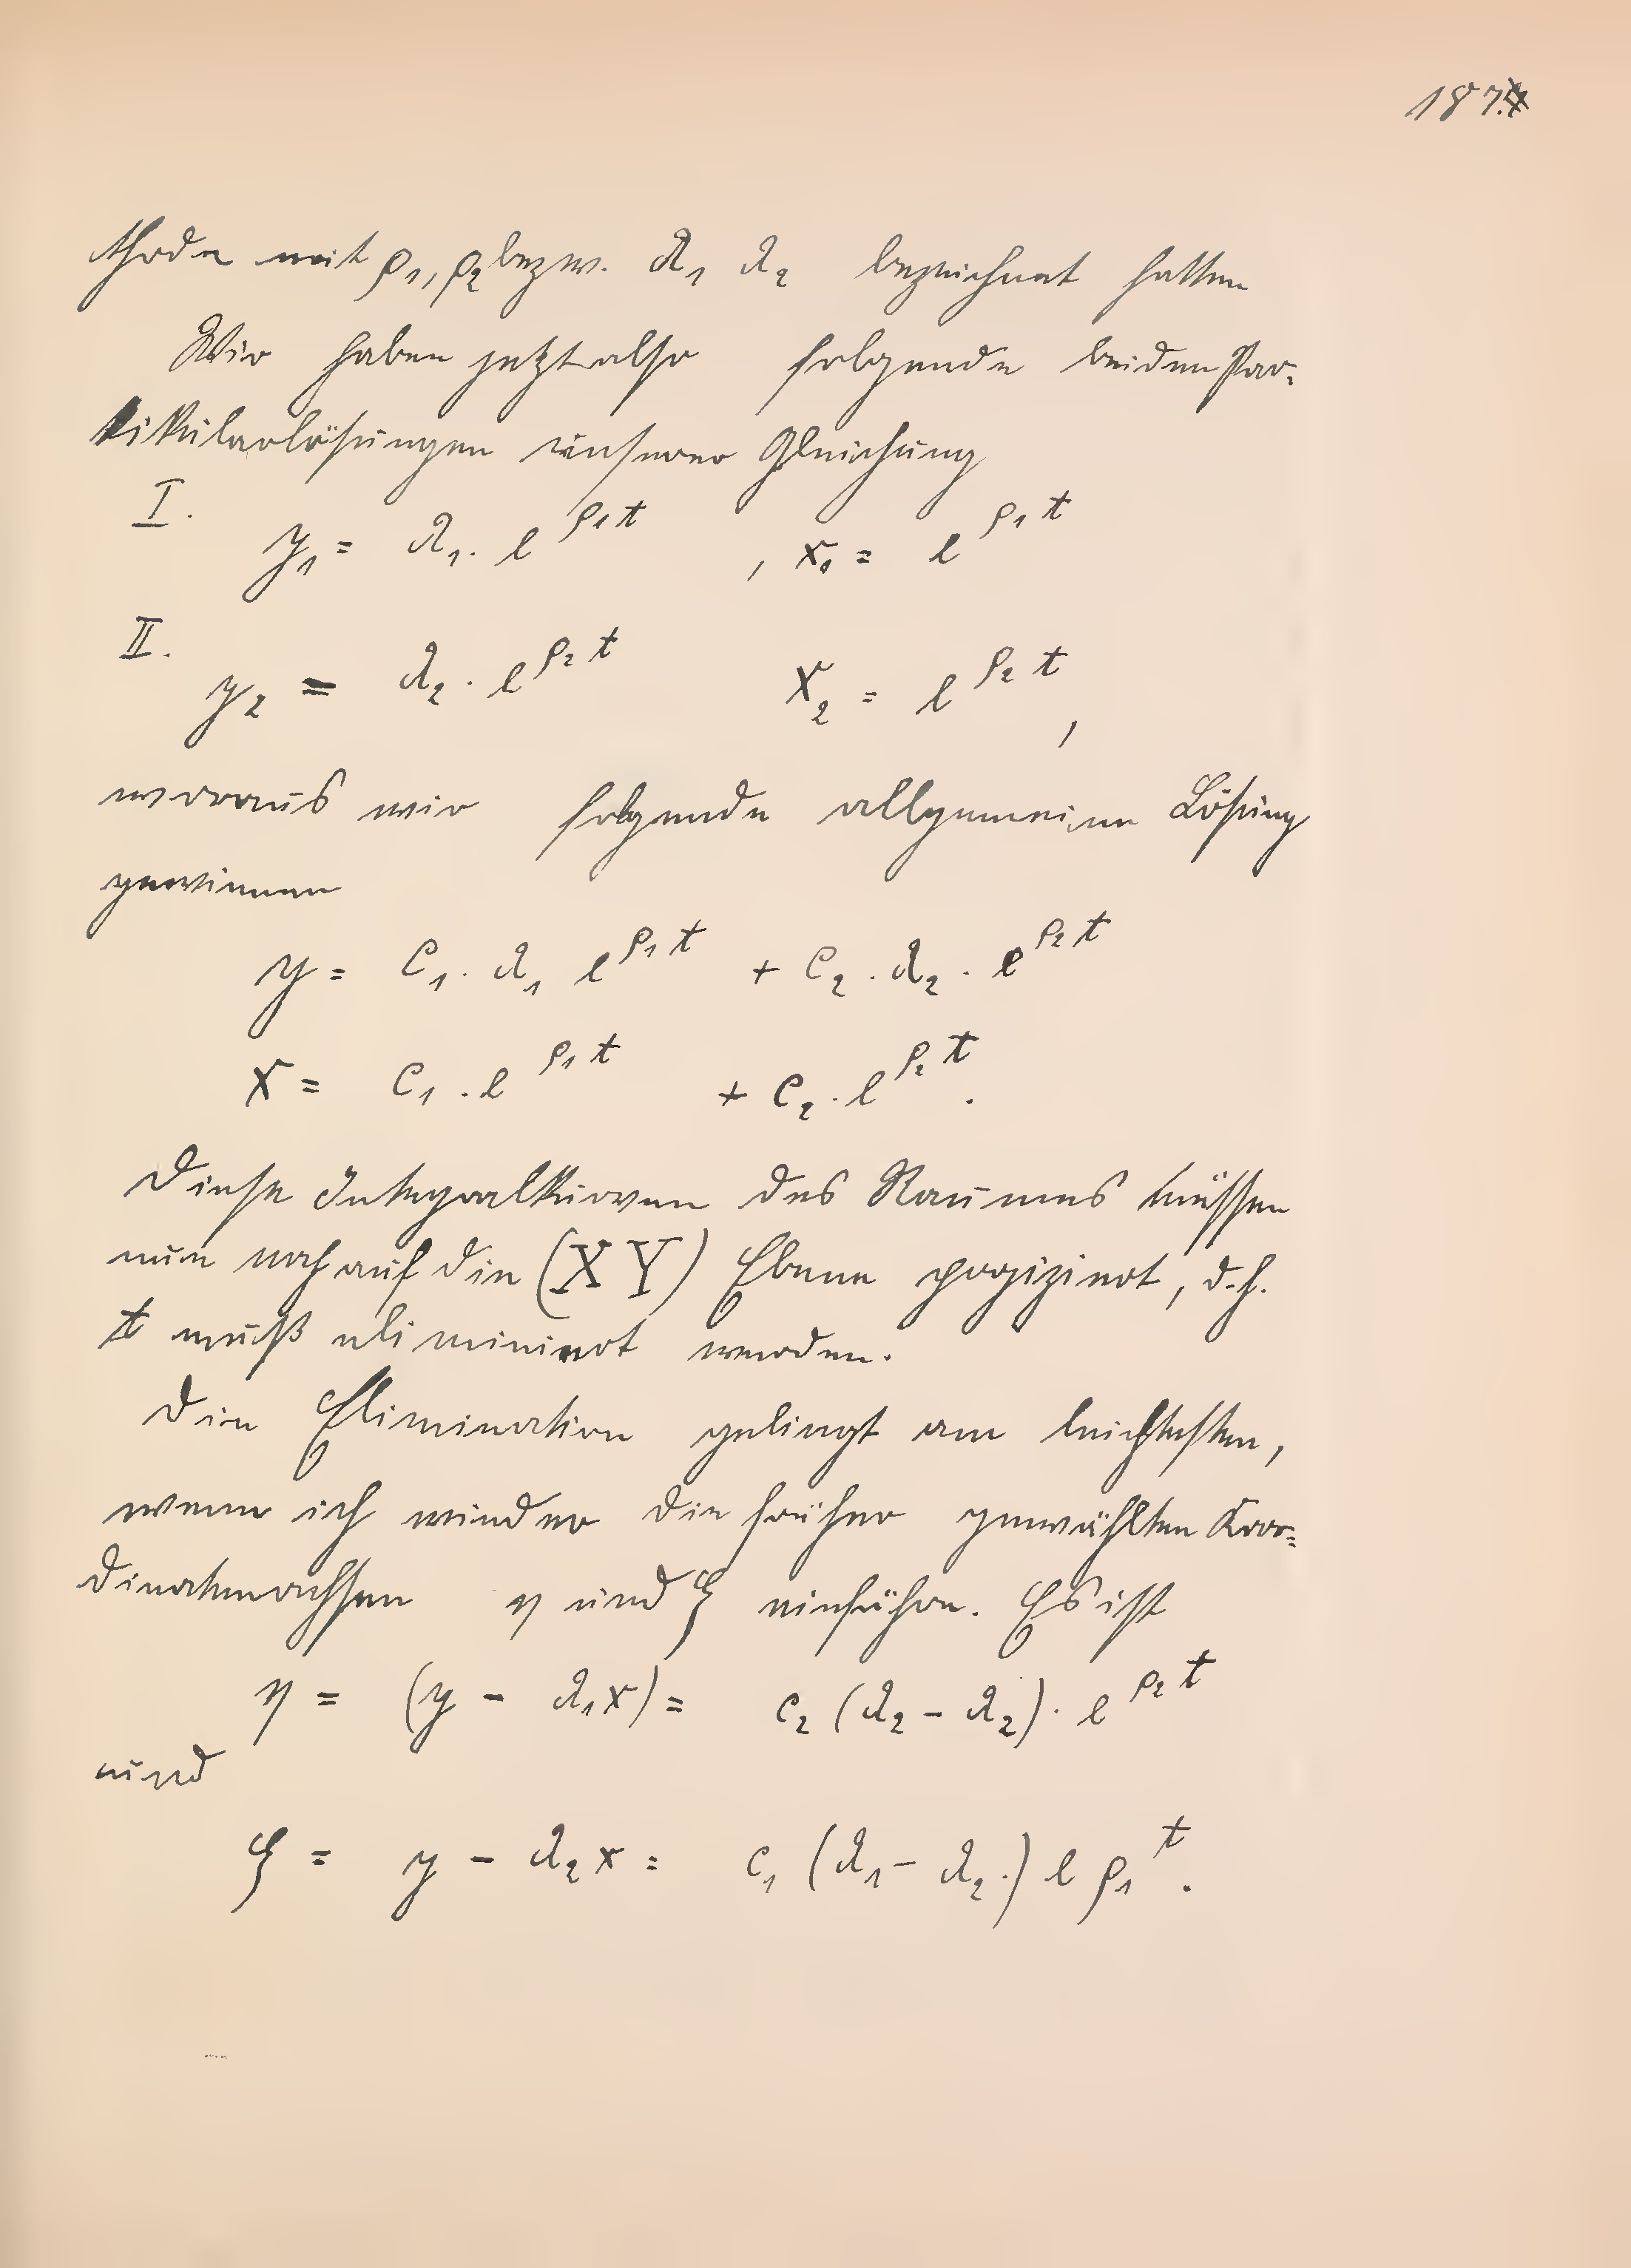 187.
thode mit ρ₁, ρ₂ bezw. λ₁ λ₂ bezeichnet hatten
Wir haben jetzt also folgende beiden Par-
tikularlösungen unserer Gleichung
I. y₁ = λ₁. e^{ρ₁t}, x₁ = e^{ρ₁t}
II. y₂ = λ₂ · e^{ρ₂t} x₂ = e^{ρ₂t},
woraus wir folgende allgemeine Lösung
gewinnen
y = C₁. λ₁ e^{ρ₁t} + C₂ . λ₂ . e^{ρ₂t}
x = C₁ . e^{ρ₁t} + C₂ . e^{ρ₂t}.
Diese Integralkurven des Raumes müssen
nun noch auf die (X Y) Ebene projiziert, d.h.
t muß eliminiert werden.
Die Elimination gelingt am leichtesten,
wenn ich wieder die früher gewählten Koor=
dinatenachsen η und ξ einführe. Es ist
η = (y - λ₁x) = c₂ (λ₂ - λ₂) · e^{ρ₂t}
und
ξ = y - λ₂x = c₁ (λ₁ - λ₂.) e^{ρ₁t}.